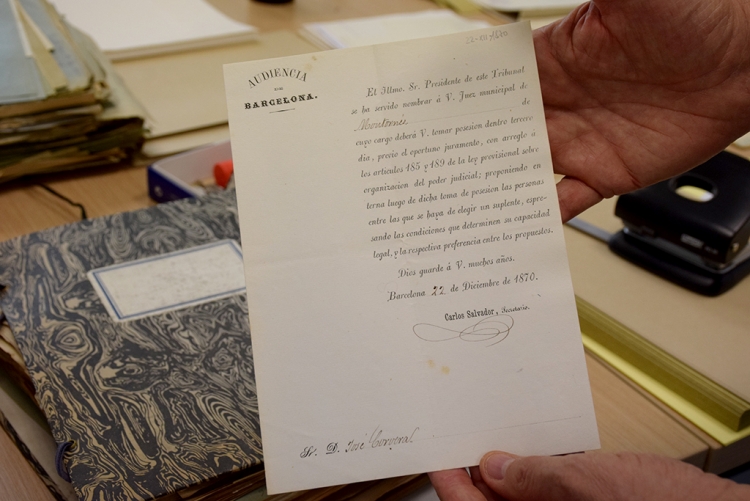 AUDIENCIA
DE
BARCELONA.
El Illmo. Sr. Presidente de este Tribunal
se ha servido nombrar á V. Juez municipal de
Montornés de
cuyo cargo deberá V. tomar posesion dentro tercero
dia, prévio el oportuno juramento, con arreglo á
los artículos 185 y 189 de la ley provisional sobre
organizacion del poder judicial; proponiendo en
terna luego de dicha toma de posesion las personas
entre las que se haya de elegir un suplente, espre-
sando las condiciones que determinen su capacidad
legal, y la respectiva preferencia entre los propuestos.
Dios guarde á V. muchos años.
Barcelona 22 de Diciembre de 1870.
Carlos Salvador,
Sr. D. José